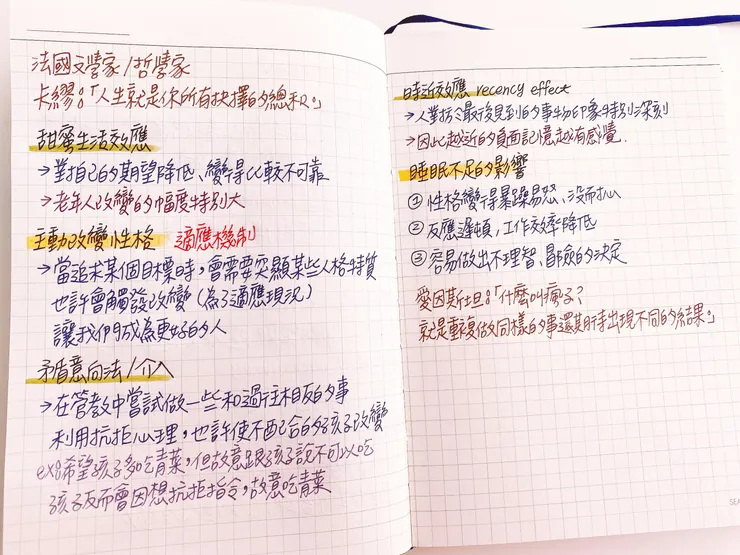 法國文學家/哲學家
卡繆:「人生就是你所有抉擇的總和。」
甜蜜生活效應
→對自己的期望降低、變得比較不可靠
→老年人改變的幅度特別大
主動改變性格 適應機制
→當追求某個目標時,會需要突顯某些人格特質
也許會觸發改變(為了適應現況)
讓我們成為更好的人
矛盾意向法/介入
→在管教中嘗試做一些和過往相反的事
利用抗拒心理,也許使不配合的孩子改變
ex:希望孩子多吃青菜,但故意跟孩子說不可以吃
孩子反而會因想抗拒指令,故意吃青菜
時近效應 recency effect
→人對於最後見到的事物印象特別深刻
→因此越近的負面記憶越有感覺.
睡眠不足的影響
①性格變得暴躁易怒、沒耐心
②反應遲頓,工作效率降低
③容易做出不理智、冒險的決定
愛因斯坦:「什麼叫瘋子?
就是重複做同樣的事還期待出現不同的結果。」